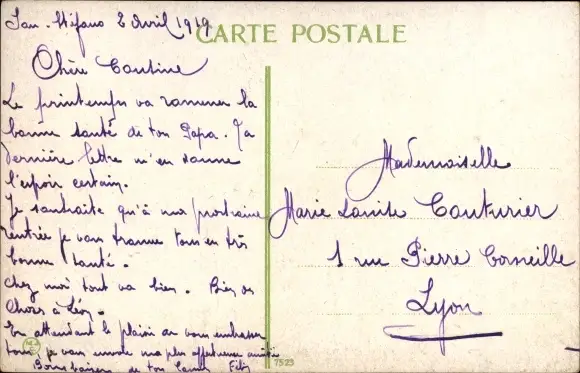 San-Stéfano 2 Avril 1919
CARTE POSTALE
Chère Cousine
Le printemps va ramener la
bonne santé de ton Papa. Ta
dernière lettre m'en donne
l'espoir certain.
Je souhaite qu'à ma prochaine
rentrée je vous trouve tous en très
bonne santé.
Chez moi tout va bien. Bien des
choses à Léon.
En attendant le plaisir de vous embrasser
tous je vous envoie ma plus affectueuse amitié
Bons baisers de ton Cousin
Mademoiselle
Marie Louise Couturier
1 rue Pierre Corneille
Lyon
7523